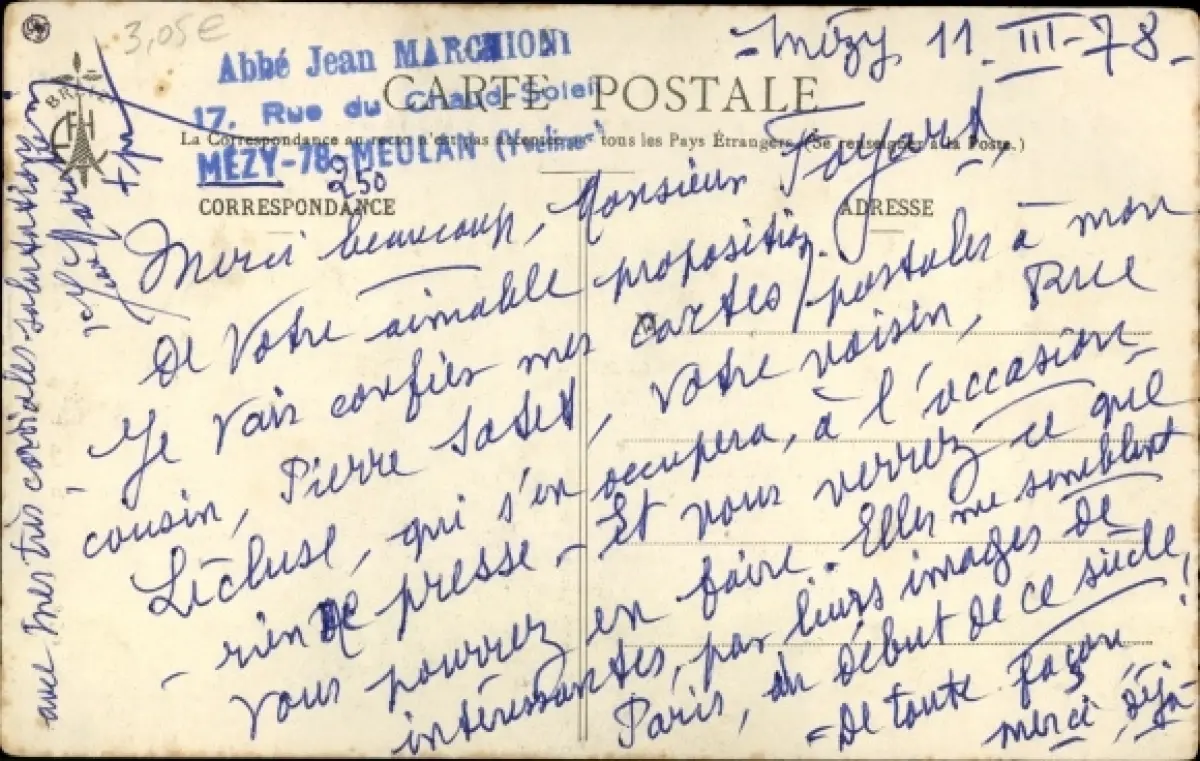 3,05 €
Abbé Jean MARCHIONI
17, Rue du Chaud-Soleil
MÉZY-78-MEULAN (Yvelines)
250
-Mézy 11-III-78-
CARTE POSTALE
La Correspondance au recto n'est pas acceptée par tous les Pays Étrangers (Se renseigner à la Poste.)
CORRESPONDANCE
ADRESSE
Merci beaucoup, Monsieur Fayard,
de Votre aimable proposition.
Je vais confier mes cartes postales à mon
cousin, Pierre , votre voisin, Rue
Lécluse, qui s'en occupera, à l'occasion-
- rien de presse - Et vous verrez ce que
vous pourrez en faire. Elles me semblent
intéressantes, par leurs images de
Paris, au début de ce siècle!
- De toute façon
merci, déjà-
avec mes très cordiales salutations